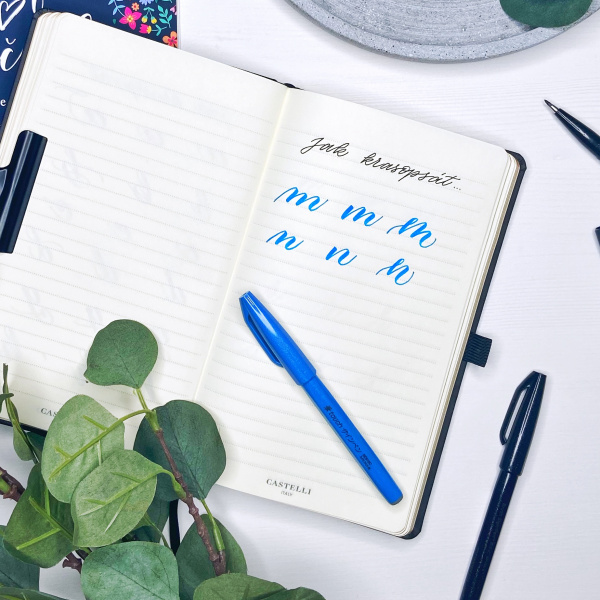 Jak krasopsát...
m m m
n n n
CASTELLI
ITALY